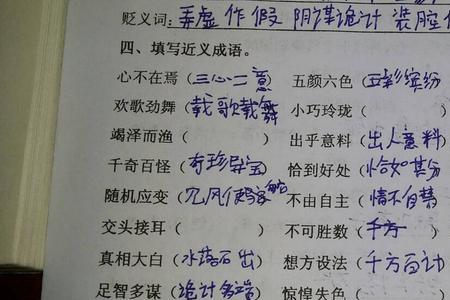 贬义词：弄虚作假 阴谋诡计 装腔作
四、填写近义成语。
心不在焉（三心二意 五颜六色（五彩缤纷
欢歌劲舞（载歌载舞 小巧玲珑（
竭泽而渔（ ） 出乎意料（出人意料
千奇百怪（奇珍异宝） 恰到好处（恰如其分
随机应变（见风使 不由自主（情不自禁
交头接耳（ ） 不可胜数（千方
真相大白（水落石出） 想方设法（千方百计
足智多谋（诡计多端 惊惶失色（